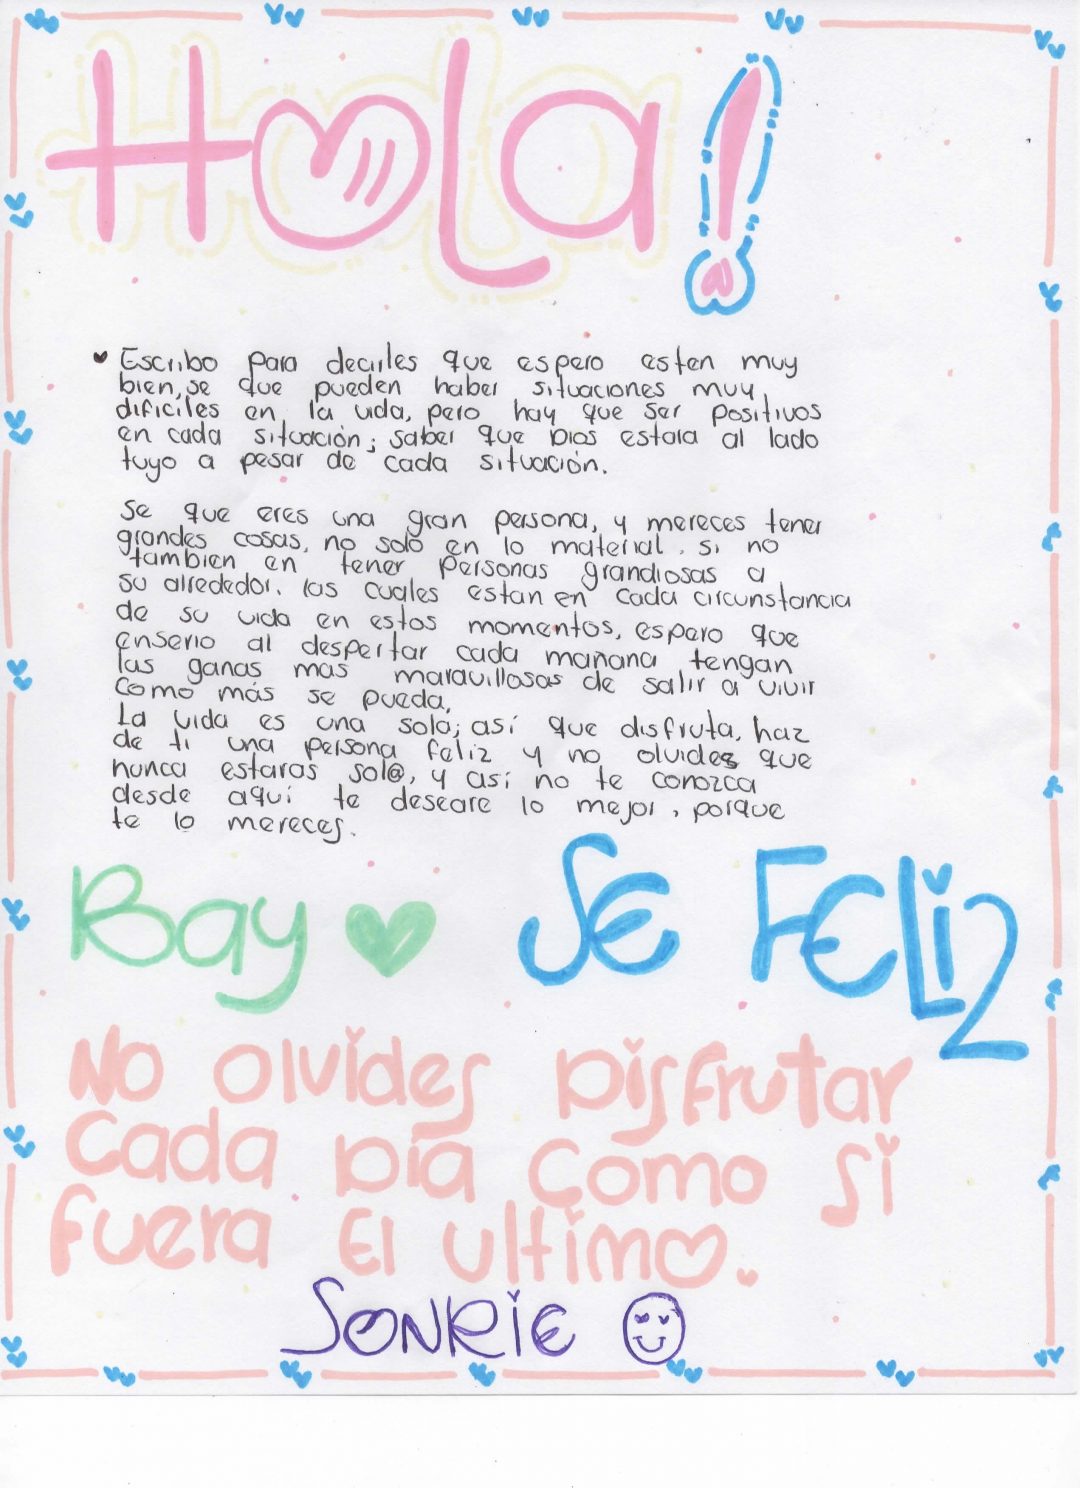 Hola!
Escribo para decirles que espero esten muy
bien, se que pueden haber situaciones muy
dificiles en la vida, pero hay que ser positivos
en cada situación; saber que Dios estara al lado
tuyo a pesar de cada situación.
Se que eres una gran persona, y mereces tener
grandes cosas, no solo en lo material. si no
tambien en tener personas grandiosas a
su alrededor. las cuales estan en cada circunstancia
de su vida en estos momentos, espero que
enserio al despertar cada mañana tengan
las ganas mas maravillosas de salir a vivir
como más se pueda.
La vida es una sola; así que disfruta, haz
de ti una persona feliz y no olvides que
nunca estaras sol@, y así no te conozca
desde aquí te deseare lo mejor, porque
te lo mereces.
Bay SE FELiz
No olvides Disfrutar
Cada Día Como Si
fuera El ultimo.
SONRIE